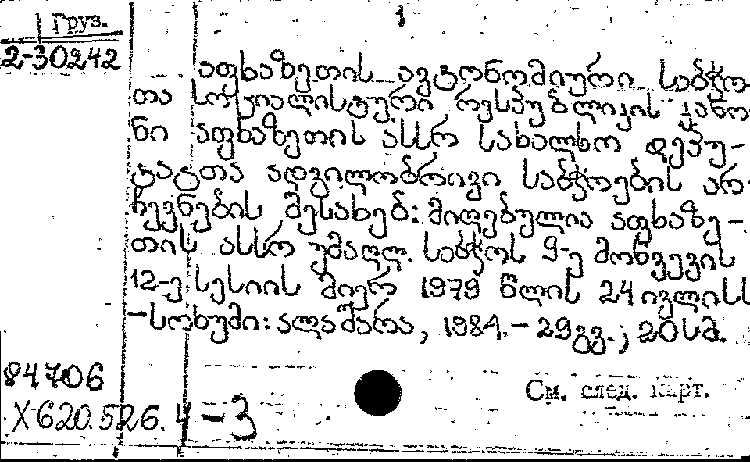 Груз.
1
2-30242
აფხაზეთის ავტონომიური საბჭო-
თა სოციალისტური რესპუბლიკის კანო-
ნი აფხაზეთის ასსრ სახალხო დეპუ-
ტატთა ადგილობრივი საბჭოების არ-
ჩევნების შესახებ: მიღებულია აფხაზე-
თის ასსრ უმაღლ. საბჭოს 9-ე მოწვევის
12-ე სესიის მიერ 1979 წლის 24 ივლისს
-სოხუმი: ალაშარა, 1981.- 29გვ.; 20სმ.
84706
X620.526.4-3
См. след. карт.